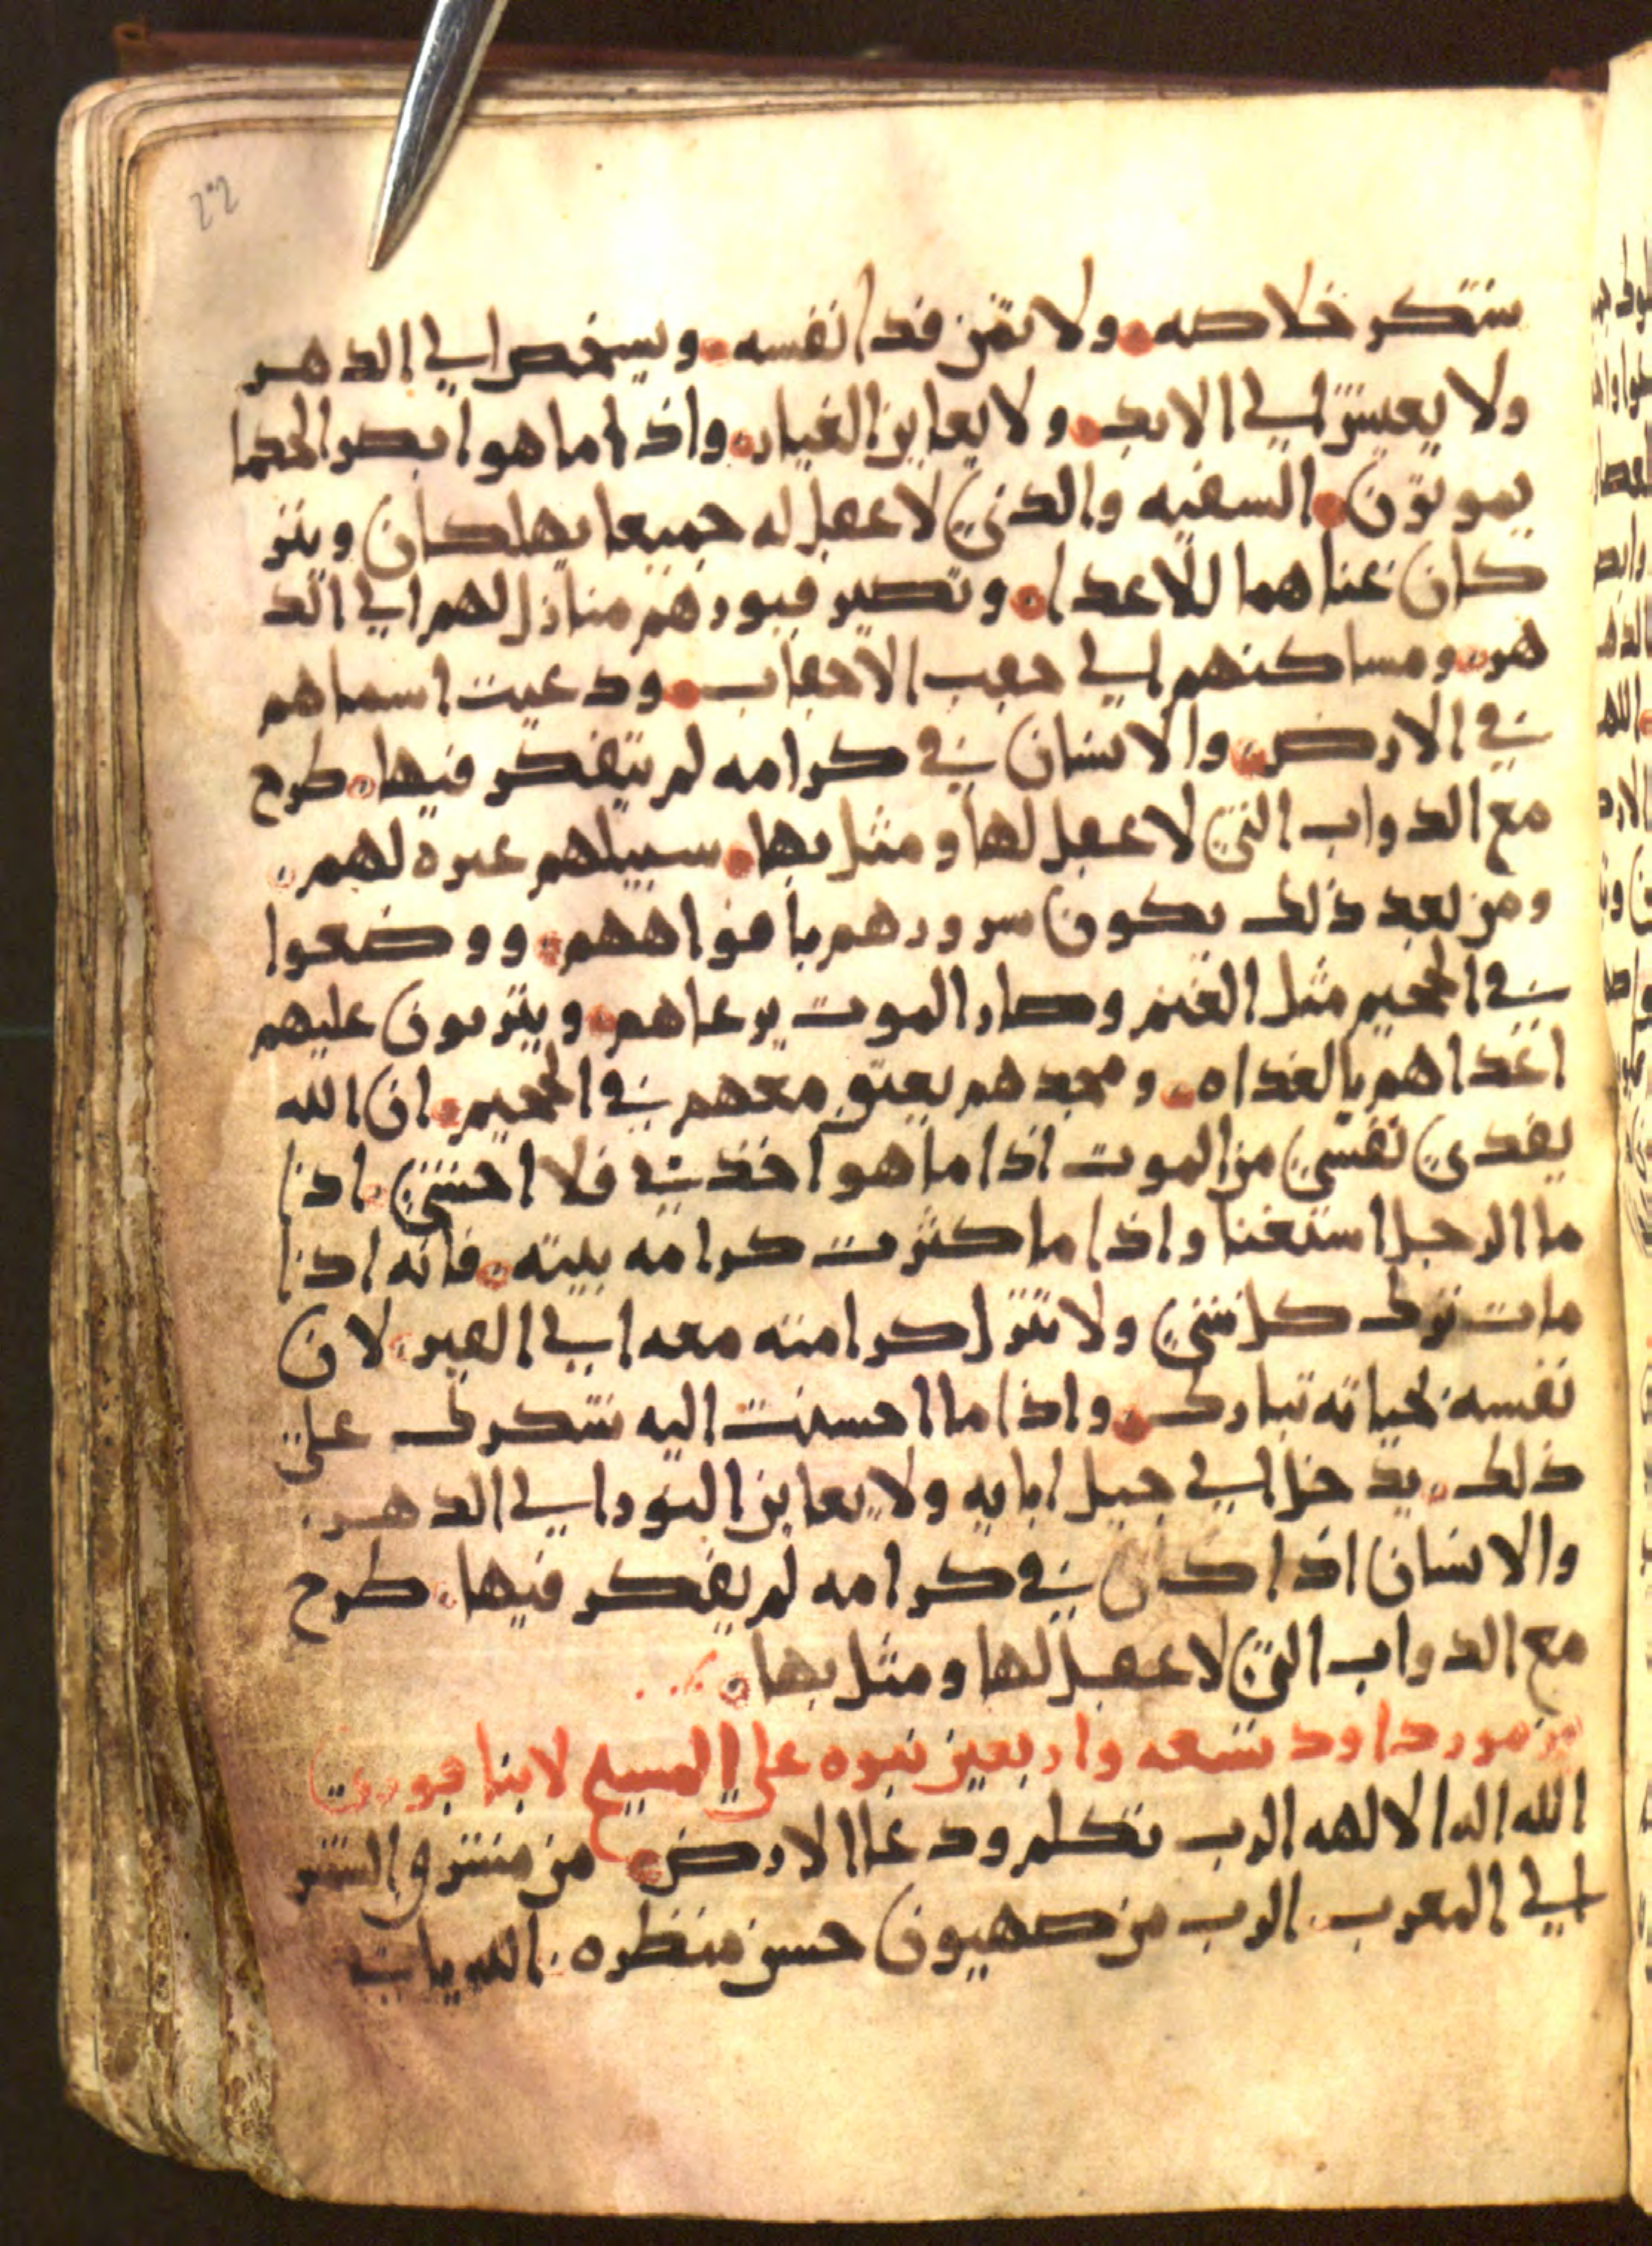 شكر خلاصه ولا ثمن فدا نفسه ويشخص الي الدهر
ولا يعيش الي الابد ولا يعاين الغيار واذا ما هو ابصر الحكما
يموتون السفيه والذي لا عقل له جميعا يهلكان ويتر
كان غناهما للاعدا وتصير قبورهم منازل لهم الي الد
هر ومساكنهم الي حقب الاحقاب ودعيت اسماهم
في الارض والانسان في كرامه لم يتفكر فيها طرح
مع الدواب التي لا عقل لها ومثل بها سبيلهم عبره لهم
ومن بعد ذلك يكون سرورهم بافواههم ووضعوا
في الجحيم مثل الغنم وصار الموت يرعاهم ويتربون عليهم
اغداهم بالغداه ومجدهم يعتق معهم في الجحيم ان الله
يفدي نفسي من الموت اذا ما هو اخذني فلا اخشي اذا
ما الرجل استغنا واذا ما كثرت كرامه بيته فانه اذا
مات ترك كل شي ولا تنزل كرامته معه الي القبر لان
نفسه لحياته تبارك واذا ما احسنت اليه شكرك علي
ذلك يدخل الي جيل ابايه ولا يعاين النور الي الدهر
والانسان اذا كان في كرامه لم يفكر فيها طرح
مع الدواب التي لا عقل لها ومثل بها
مزمور داود تسعه واربعين نبوه علي المسيح لابنا قورح
الله اله الالهه الرب تكلم ودعا الارض من مشرق الشمس
الي المغرب الرب من صهيون حسن منظره الله يات